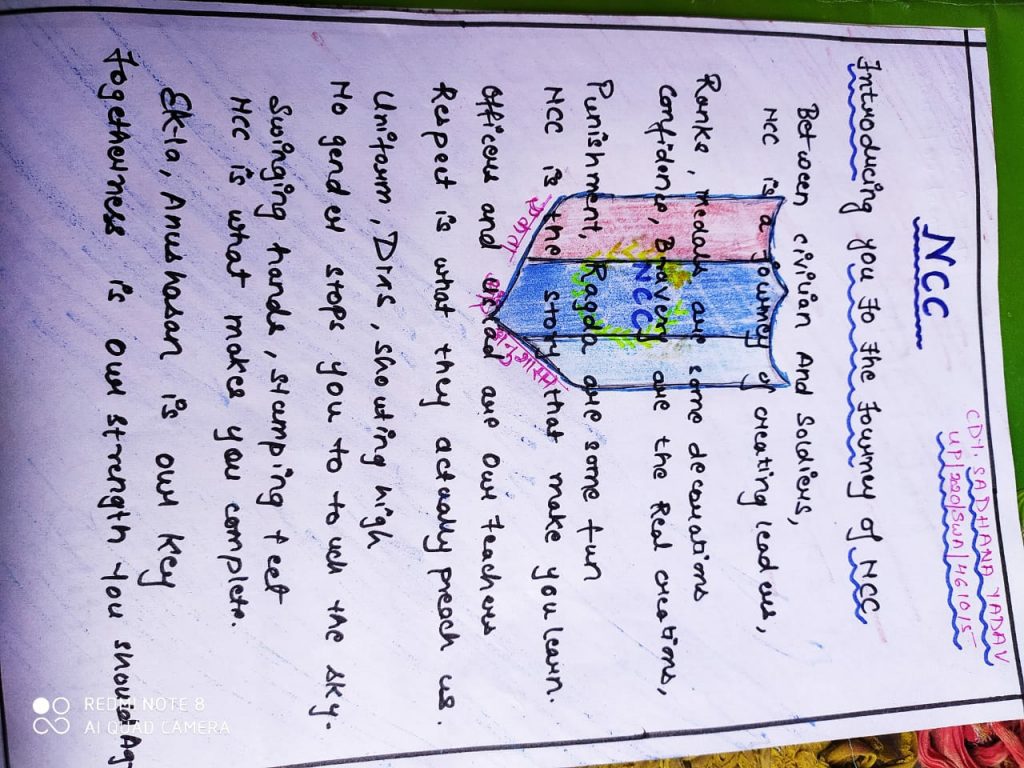 CDT. SADHANA YADAV
NCC
Introducing you to the Journey of NCC
Between civilian And Soldiers,
NCC is a journey of creating leaders,
Ranks, medals are some decorations
Confidence, Bravery are the Real creations,
Punishment, Ragda are some fun
NCC is the story that make you learn.
Officers and ustad are our teachers
Respect is what they actually preach us.
Uniform, shouting high
No gender stops you to touch the sky.
Swinging hands, stamping feet
NCC is what makes you complete.
Ekta, Anushasan is our Key
Togetherness is our strength you should Ag
NCC
एकता और अनुशासन
REDMI NOTE 8
AI QUAD CAMERA